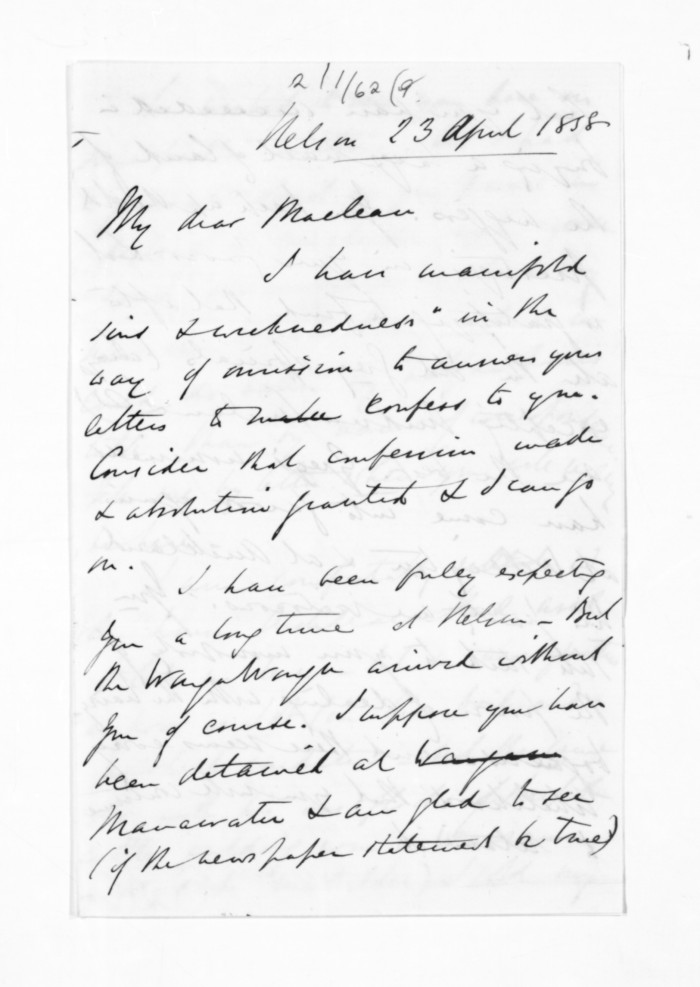 Nelson 23 April 1858
My dear Maclean
I have manifold
sins & wickednesses" in the
way of omission to answer your
letters to make confess to you.
Consider that confession made
& absolution granted & I can go
on.
I have been fully expecting
you a long time at Nelson - But
the Wonga Wonga arrived without
you of course. I suppose you have
been detained at
Manawatu & am glad to see
(if the newspaper statement be true)